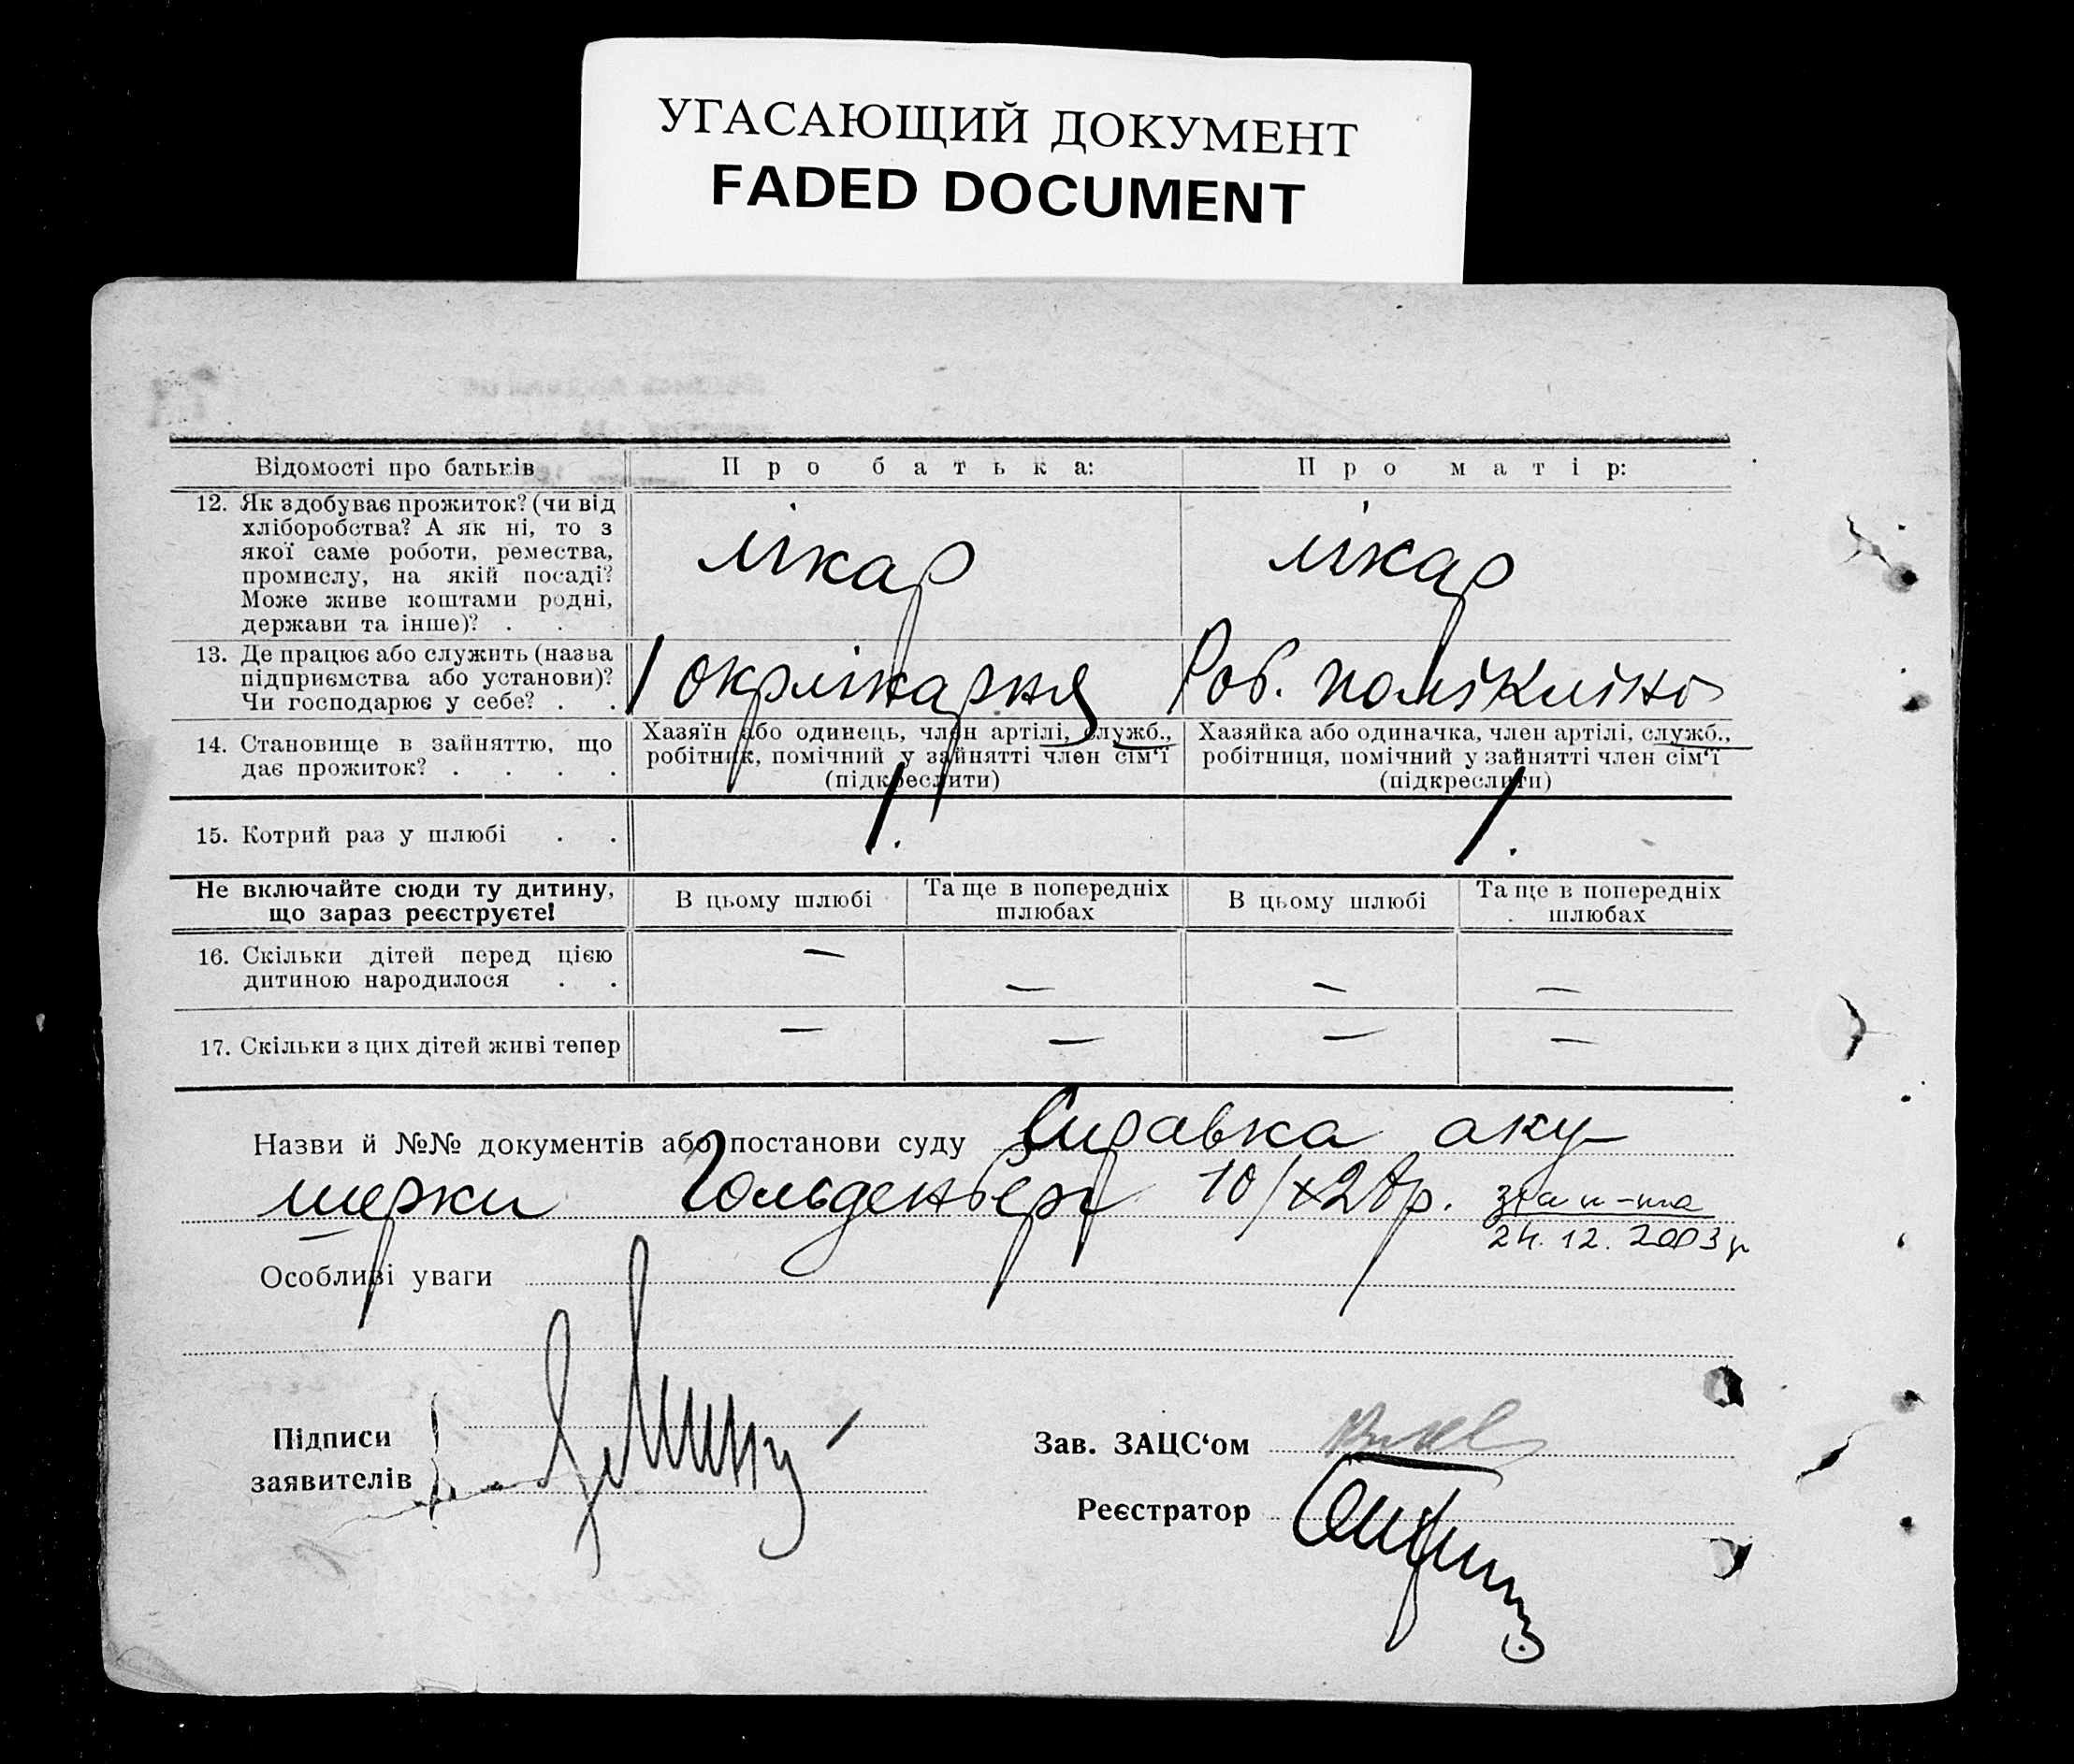 УГАСАЮЩИЙ ДОКУМЕНТ
FADED DOCUMENT
Відомості про батьків
Про батька:
Про матір:
12. Як здобуває прожиток? (чи від
хліборобства? А як ні, то з
якої саме роботи, ремества,
промислу, на якій посаді?
Може живе коштами родні,
держави та інше)? . .
лікар
лікар
13. Де працює або служить (назва
підприємства або установи)?
Чи господарює у себе? . .
1 окрлікарня
Роб. поліклініка
14. Становище в зайняттю, що
дає прожиток? . . . .
Хазяїн або одинець, член артілі, служб.,
робітник, помічний у зайнятті член сім‘ї
(підкреслити)
Хазяйка або одиначка, член артілі, служб.,
робітниця, помічний у зайнятті член сім‘ї
(підкреслити)
15. Котрий раз у шлюбі . .
1.
1.
Не включайте сюди ту дитину,
що зараз реєструєте!
В цьому шлюбі
Та ще в попередніх
шлюбах
В цьому шлюбі
Та ще в попередніх
шлюбах
16. Скільки дітей перед цією
дитиною народилося . .
— — — —
17. Скільки з цих дітей живі тепер
— — — —
Назви й №№ документів або постанови суду Справка аку-
шерки Гольденберг 10/X
24. 12. 2003 р
Особливі уваги
Підписи
заявителів
Зав. ЗАЦС‘ом
Реєстратор